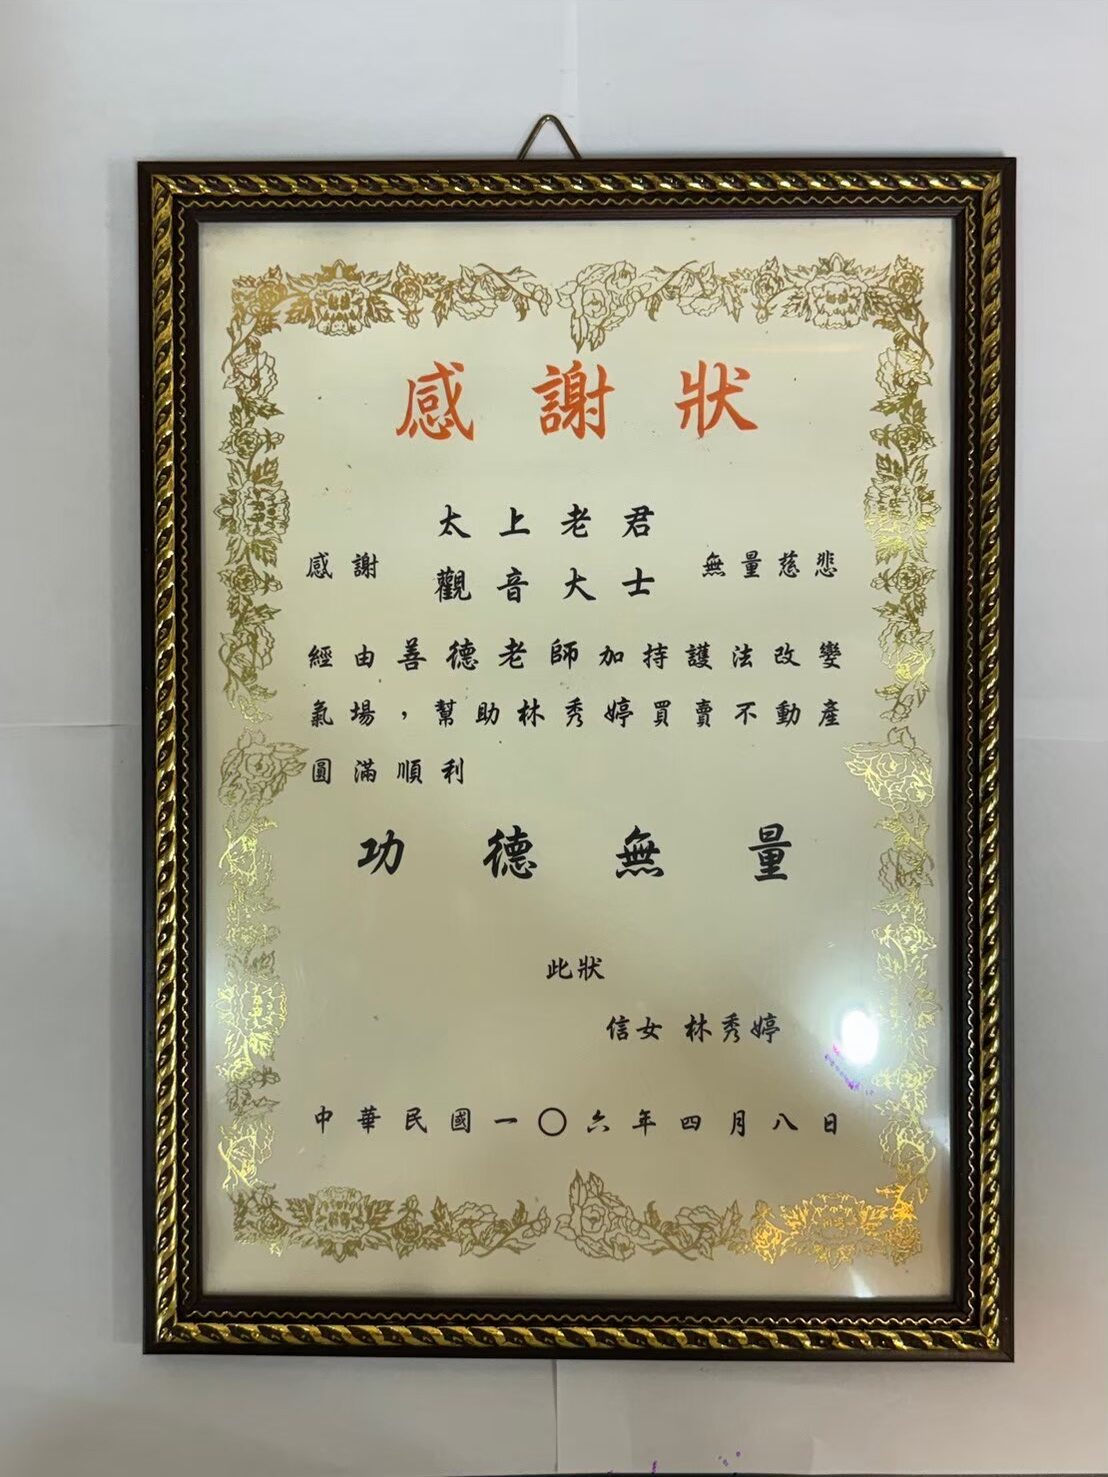 感謝狀
太上老君
感謝 無量慈悲
觀音大士
經由善德老師加持護法改變
氣場，幫助林秀婷買賣不動產
圓滿順利
功德無量
此狀
信女 林秀婷
中華民國一〇六年四月八日